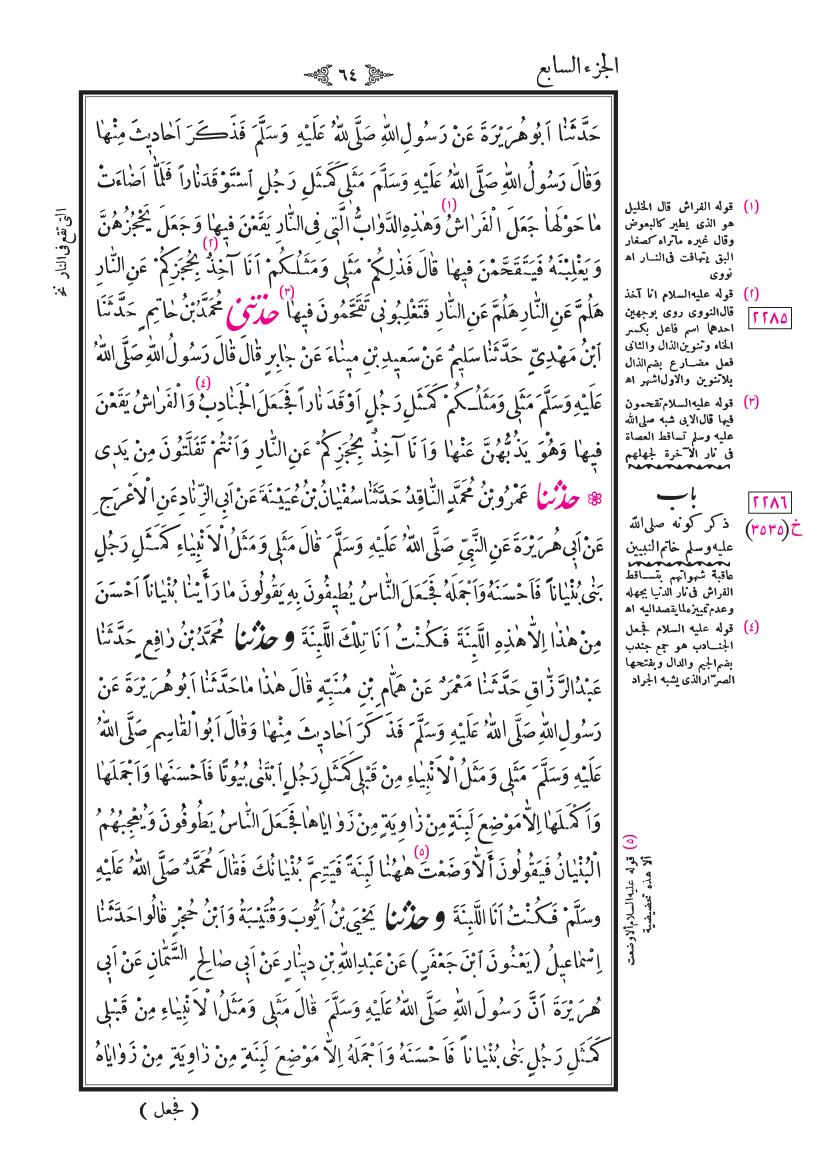 الجزء السابع
٦٤
حَدَّثَنَا اَبُو هُرَيْرَةَ عَنْ رَسُولِ اللهِ صَلَّى اللهُ عَلَيْهِ وَسَلَّمَ فَذَكَرَ اَحَادِيثَ مِنْهَا
وَقَالَ رَسُولُ اللهِ صَلَّى اللهُ عَلَيْهِ وَسَلَّمَ مَثَلِى كَمَثَلِ رَجُلٍ اسْتَوْقَدَ نَاراً فَلَمَّا اَضَاءَتْ
مَا حَوْلَهَا جَعَلَ الْفَرَاشُ (١) وَهٰذِهِ الدَّوَابُّ الَّتِى فِى النَّارِ يَقَعْنَ فِيهَا وَجَعَلَ يَحْجُزُهُنَّ
وَيَغْلِبْنَهُ فَيَتَقَحَّمْنَ فِيهَا قَالَ فَذٰلِكُمْ مَثَلِى وَمَثَلُكُمْ اَنَا آخِذٌ (٢) بِحُجَزِكُمْ عَنِ النَّارِ
هَلُمَّ عَنِ النَّارِ هَلُمَّ عَنِ النَّارِ فَتَغْلِبُونِى تَقَحَّمُونَ فِيهَا (٣) حَدَّثَنِى مُحَمَّدُ بْنُ حَاتِمٍ حَدَّثَنَا
ابْنُ مَهْدِىٍّ حَدَّثَنَا سَلِيمٌ عَنْ سَعِيدِ بْنِ مِينَاءَ عَنْ جَابِرٍ قَالَ قَالَ رَسُولُ اللهِ صَلَّى اللهُ
عَلَيْهِ وَسَلَّمَ مَثَلِى وَمَثَلُكُمْ كَمَثَلِ رَجُلٍ اَوْقَدَ نَاراً فَجَعَلَ الْجَنَادِبُ (٤) وَالْفَرَاشُ يَقَعْنَ
فِيهَا وَهُوَ يَذُبُّهُنَّ عَنْهَا وَاَنَا آخِذٌ بِحُجَزِكُمْ عَنِ النَّارِ وَاَنْتُمْ تَفَلَّتُونَ مِنْ يَدِى
حَدَّثَنَا عَمْرُو بْنُ مُحَمَّدٍ النَّاقِدُ حَدَّثَنَا سُفْيَانُ بْنُ عُيَيْنَةَ عَنْ اَبِى الزِّنَادِ عَنِ الْاَعْرَجِ
عَنْ اَبِى هُرَيْرَةَ عَنِ النَّبِىِّ صَلَّى اللهُ عَلَيْهِ وَسَلَّمَ قَالَ مَثَلِى وَمَثَلُ الْاَنْبِيَاءِ كَمَثَلِ رَجُلٍ
بَنٰى بُنْيَاناً فَاَحْسَنَهُ وَاَجْمَلَهُ فَجَعَلَ النَّاسُ يُطِيفُونَ بِهِ يَقُولُونَ مَا رَأَيْنَا بُنْيَاناً اَحْسَنَ
مِنْ هٰذَا اِلَّا هٰذِهِ اللَّبِنَةَ فَكُنْتُ اَنَا تِلْكَ اللَّبِنَةَ وحَدَّثَنَا مُحَمَّدُ بْنُ رَافِعٍ حَدَّثَنَا
عَبْدُ الرَّزَّاقِ حَدَّثَنَا مَعْمَرٌ عَنْ هَمَّامِ بْنِ مُنَبِّهٍ قَالَ هٰذَا مَا حَدَّثَنَا اَبُو هُرَيْرَةَ عَنْ
رَسُولِ اللهِ صَلَّى اللهُ عَلَيْهِ وَسَلَّمَ فَذَكَرَ اَحَادِيثَ مِنْهَا وَقَالَ اَبُو الْقَاسِمِ صَلَّى اللهُ
عَلَيْهِ وَسَلَّمَ مَثَلِى وَمَثَلُ الْاَنْبِيَاءِ مِنْ قَبْلِى كَمَثَلِ رَجُلٍ ابْتَنٰى بُيُوتًا فَاَحْسَنَهَا وَاَجْمَلَهَا
وَاَكْمَلَهَا اِلَّا مَوْضِعَ لَبِنَةٍ مِنْ زَاوِيَةٍ مِنْ زَوَايَاهَا فَجَعَلَ النَّاسُ يَطُوفُونَ وَيُعْجِبُهُمُ
الْبُنْيَانُ فَيَقُولُونَ اَلَّا وَضَعْتَ (٥) هٰهُنَا لَبِنَةً فَيَتِمَّ بُنْيَانُكَ فَقَالَ مُحَمَّدٌ صَلَّى اللهُ عَلَيْهِ
وَسَلَّمَ فَكُنْتُ اَنَا اللَّبِنَةَ وحَدَّثَنَا يَحْيَى بْنُ اَيُّوبَ وَقُتَيْبَةُ وَابْنُ حُجْرٍ قَالُوا حَدَّثَنَا
اِسْمَاعِيلُ (يَعْنُونَ ابْنَ جَعْفَرٍ) عَنْ عَبْدِ اللهِ بْنِ دِينَارٍ عَنْ اَبِى صَالِحٍ السَّمَّانِ عَنْ اَبِى
هُرَيْرَةَ اَنَّ رَسُولَ اللهِ صَلَّى اللهُ عَلَيْهِ وَسَلَّمَ قَالَ مَثَلِى وَمَثَلُ الْاَنْبِيَاءِ مِنْ قَبْلِى
كَمَثَلِ رَجُلٍ بَنٰى بُنْيَاناً فَاَحْسَنَهُ وَاَجْمَلَهُ اِلَّا مَوْضِعَ لَبِنَةٍ مِنْ زَاوِيَةٍ مِنْ زَوَايَاهُ
( فجعل )
(١) قوله الفراش قال الخليل
هو الذى يطير كالبعوض
وقال غيره ماتراه كصغار
البق يتهافت فى النار اه
نووى
(٢) قوله عليه السلام انا آخذ
قال النووى روى بوجهين
احدهما اسم فاعل بكسر
الخاء وتنوين الذال والثانى
فعل مضارع بضم الذال
بلا تنوين والاول اشهر اه
(٣) قوله عليه السلام تقحمون
فيها قال الابى شبه صلى الله
عليه وسلم تساقط العصاة
فى نار الآخرة لجهلهم
باب
ذكر كونه صلى الله
عليه وسلم خاتم النبيين
عاقبة شهواتهم بتساقط
الفراش فى نار الدنيا بجهله
وعدم تمييزه لما يقصد اليه اه
(٤) قوله عليه السلام فجعل
الجنادب هو جمع جندب
بضم الجيم والدال وبفتحها
الصرار الذى يشبه الجراد
(٥) قوله عليه السلام الا وضعت
الا هذه تحضيضية
٢٢٨٥
٢٢٨٦
خ (٣٥٣٥)
التى تقع فى النار نخ